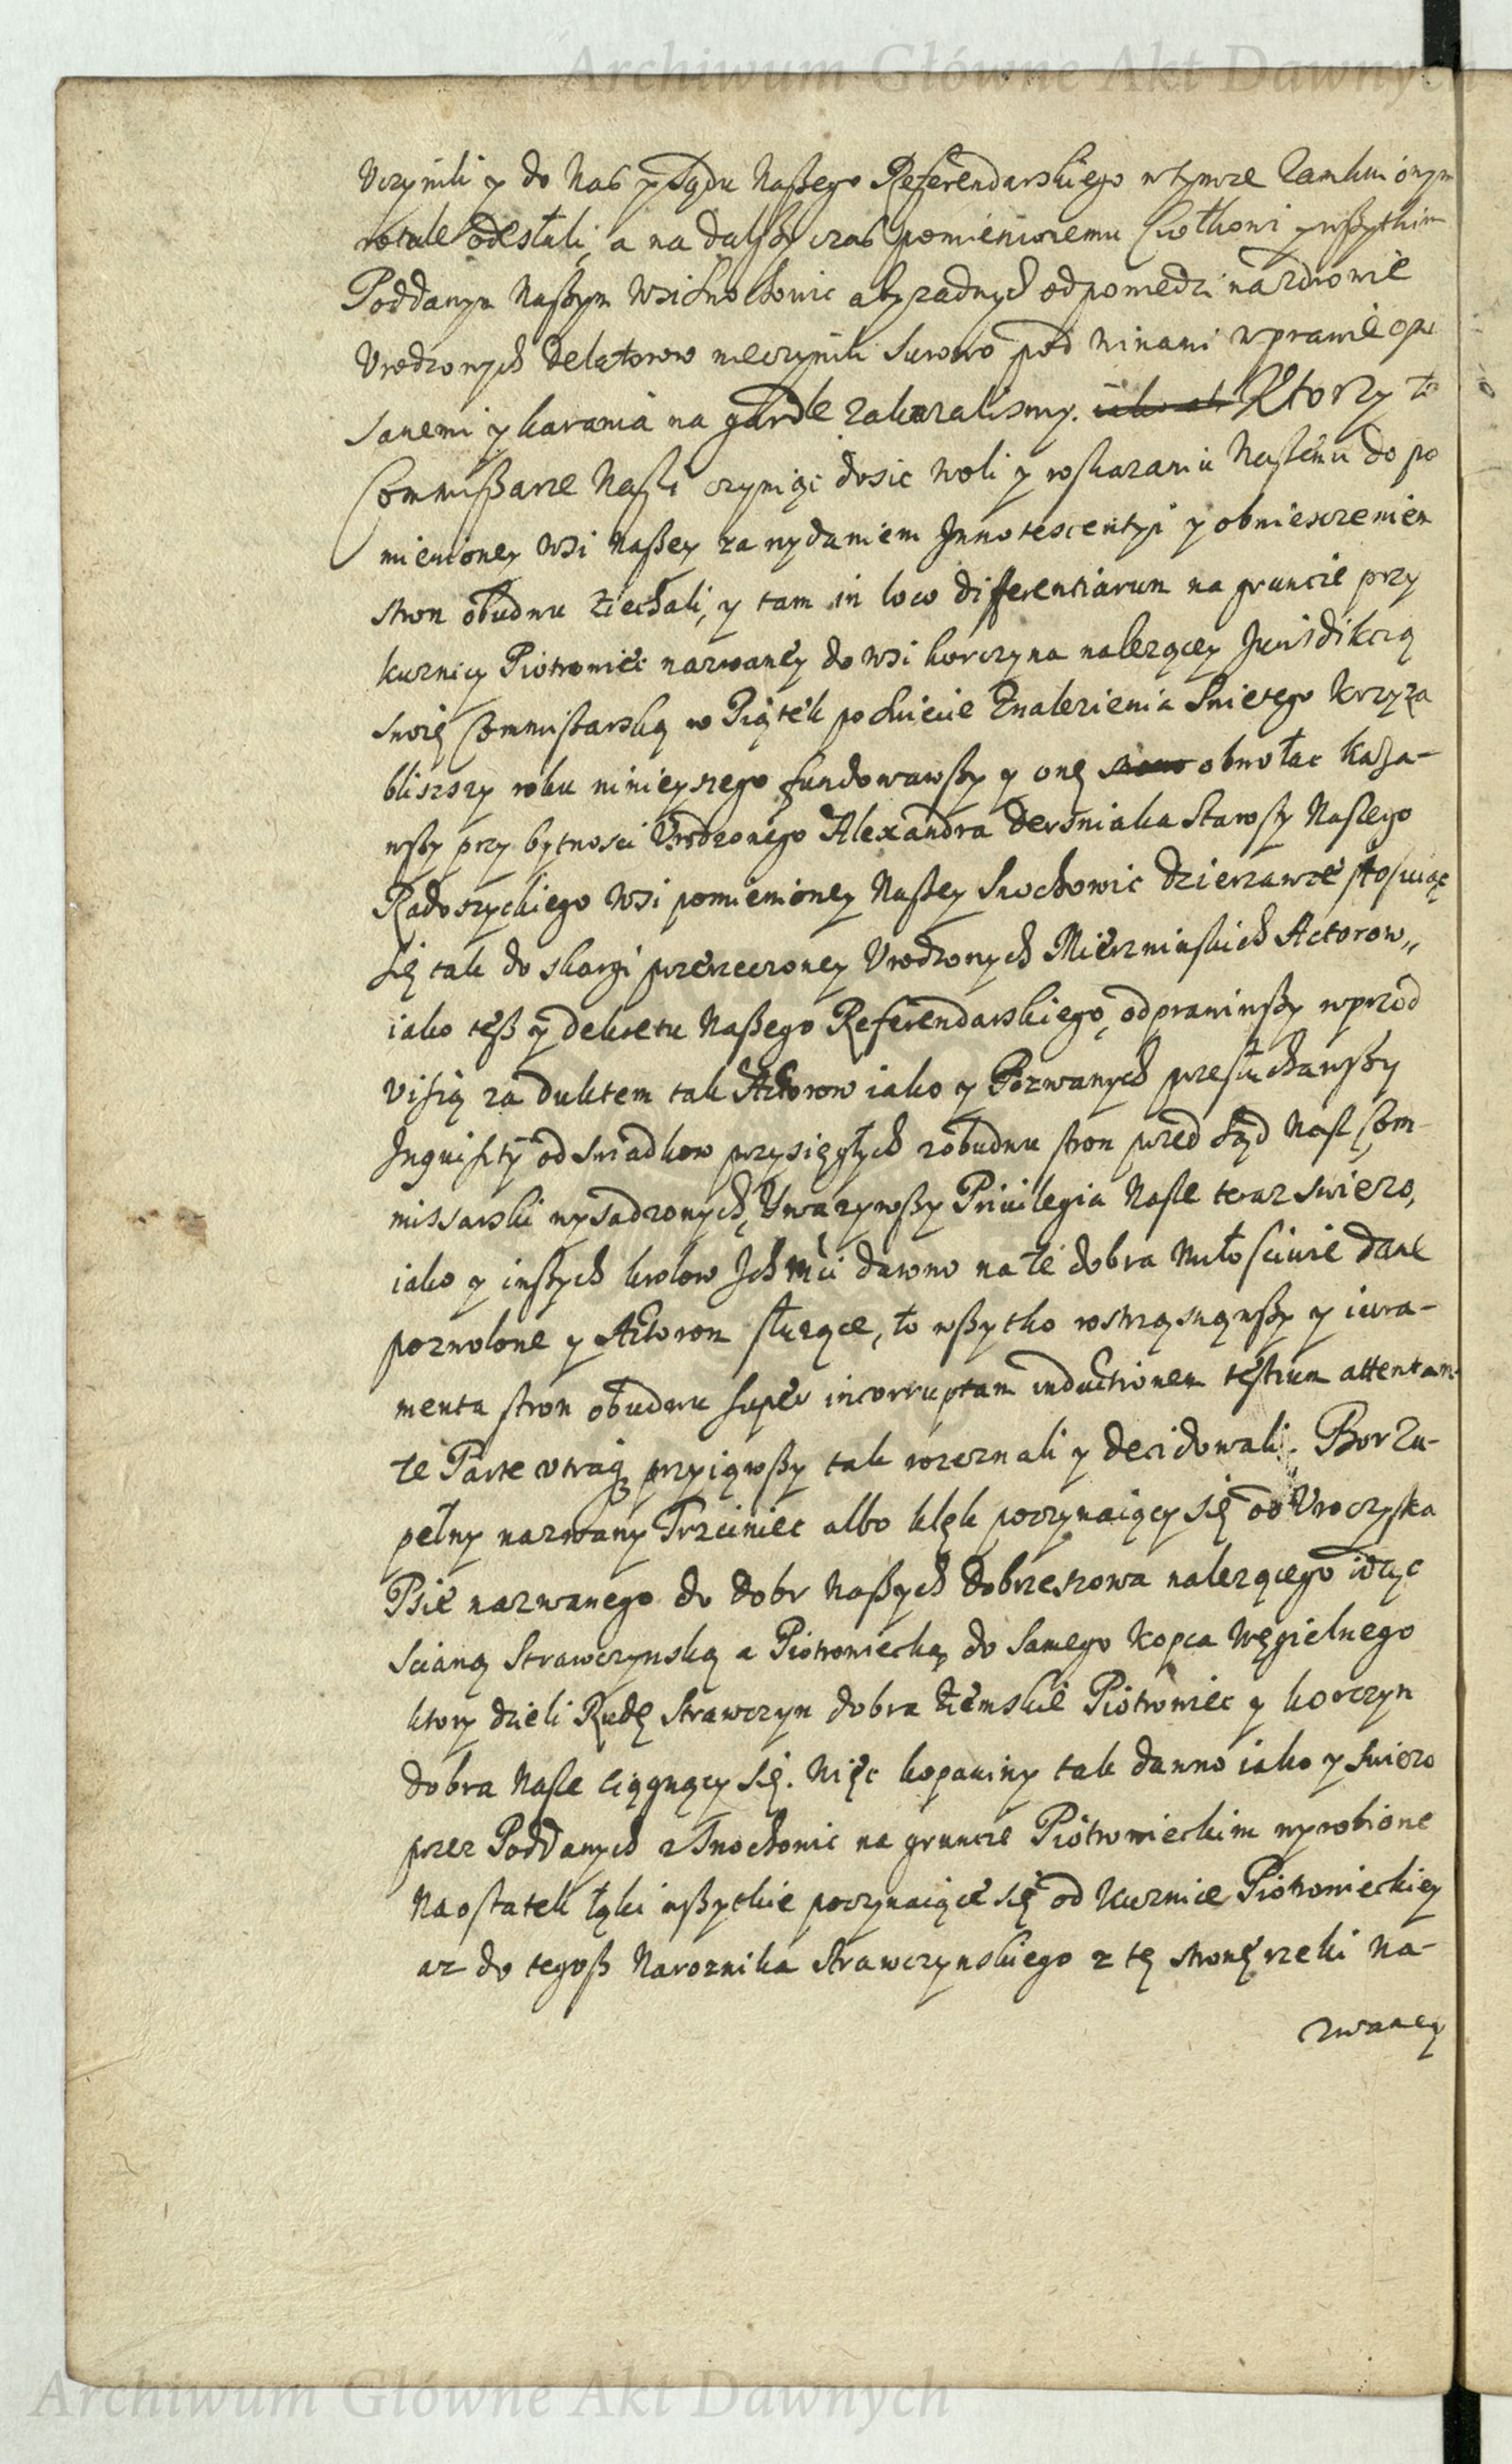 Archiwum Główne Akt Dawnych
Uczynili y do Nas y Sądu Naßego Referendarskiego w tymze Zamknionym
rotule odesłali, a na dalszy czas pomienionemu Ciołkowi y wßytkim
Poddanym Naßym Wsi Snochowic aby zadnych odpowiedzi na zdrowie
Urodzonych Delatorow nieczynili surowo pod winami w prawie opi
sanemi y karania na gardle zakazalismy. Ktorzy to
Commißarze Naßi czyniąc dosic woli y roskazaniu Naßemu do po
mienioney Wsi Naßey za wydaniem Innotescentyi y obwiesczeniem
stron obudwu ziechali, y tam in loco differentiarum na gruncie przy
kuznicy Piotrowiec nazwaney do wsi korczyna nalezącey Jurisdikczą
swoię Commißarską w Piątek po Swiecie Znalezienia Swietego Krzyza
bliszszy roku ninieyszego fundowawßy y onę obwołac kaza-
wßy przy bytnosci Urodzonego Alexandra Dersniaka Starosty Naßego
Radoszyckiego Wsi pomienioney Naßey Snochowic dzierzawce stosuiąc
się tak do skargi przerzeczoney Urodzonych Mierzwinskich Actorow,,
iako teß y dekretu Naßego Referendarskiego, odprawiwßy wprzod
Visią za duktem tak Aktorow iako y Pozwanych przesłuchawßy
Inquisity od swiadkow przysięgłych z obudwu stron przed Sąd Naß Com-
missarski wysadzonych, Uwazywßy Privilegia Naße teraz swiezo,
iako y inßych krolow Ich Mci dawno na te dobra miłosciwie dane
pozwolone y Aktorom słuzące, to wßytko rostrząsnąwßy y iura-
menta stron obudwu super incorruptam inductionem testium attentan-
te Parte utraq przyiąwßy tak rozeznali y decidowali. Bor Zu-
pełny nazwany Trzciniec albo klęk poczynaiący się od Uroczyska
Psie nazwanego do dobr Naßych Dobrzeszowa nalezącego idąc
Scianą Strawczynską a Piotrowiecką do samego Kopca Węgielnego
ktory dzieli Rudę Strawczyn dobra Ziemskie Piotrowiec y korczyn
dobra Naße ciągnący się. Więc kopaniny tak dawno iako y swiezo
przez Poddanych z Snochowic na gruncie Piotrowieckim wyrobione
Na ostatek łąki wßytkie poczynaiące się od kuznice Piotrowieckiey
az do tegoß Naroznika Strawczynskiego z tę stronę rzeki Na-
zwaney
Archiwum Główne Akt Dawnych